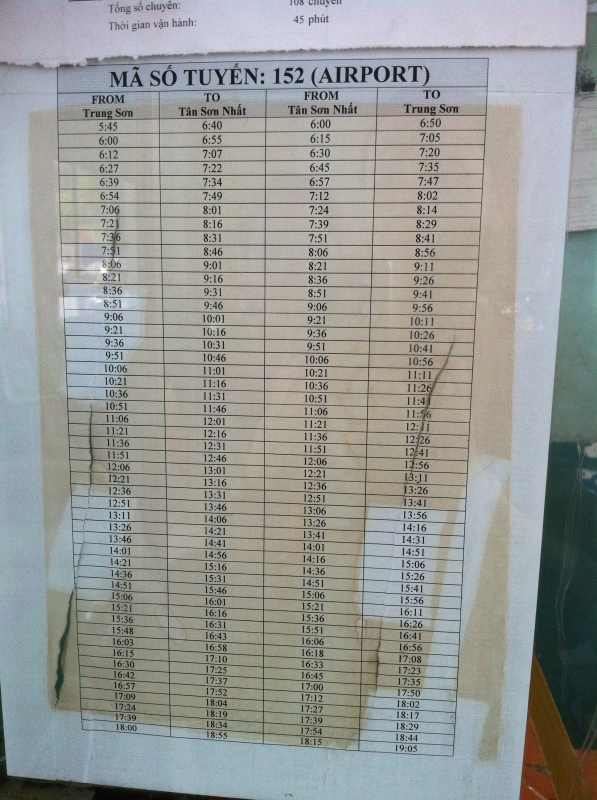 Tổng số chuyến: 108 chuyến
Thời gian vận hành: 45 phút
MÃ SỐ TUYẾN: 152 (AIRPORT)
FROM TO FROM TO
Trung Sơn Tân Sơn Nhất Tân Sơn Nhất Trung Sơn
5:45 6:40 6:00 6:50
6:00 6:55 6:15 7:05
6:12 7:07 6:30 7:20
6:27 7:22 6:45 7:35
6:39 7:34 6:57 7:47
6:54 7:49 7:12 8:02
7:06 8:01 7:24 8:14
7:21 8:16 7:39 8:29
7:36 8:31 7:51 8:41
7:51 8:46 8:06 8:56
8:06 9:01 8:21 9:11
8:21 9:16 8:36 9:26
8:36 9:31 8:51 9:41
8:51 9:46 9:06 9:56
9:06 10:01 9:21 10:11
9:21 10:16 9:36 10:26
9:36 10:31 9:51 10:41
9:51 10:46 10:06 10:56
10:06 11:01 10:21 11:11
10:21 11:16 10:36 11:26
10:36 11:31 10:51 11:41
10:51 11:46 11:06 11:56
11:06 12:01 11:21 12:11
11:21 12:16 11:36 12:26
11:36 12:31 11:51 12:41
11:51 12:46 12:06 12:56
12:06 13:01 12:21 13:11
12:21 13:16 12:36 13:26
12:36 13:31 12:51 13:41
12:51 13:46 13:06 13:56
13:11 14:06 13:26 14:16
13:26 14:21 13:41 14:31
13:46 14:41 14:01 14:51
14:01 14:56 14:16 15:06
14:21 15:16 14:36 15:26
14:36 15:31 14:51 15:41
14:51 15:46 15:06 15:56
15:06 16:01 15:21 16:11
15:21 16:16 15:36 16:26
15:36 16:31 15:51 16:41
15:48 16:43 16:06 16:56
16:03 16:58 16:18 17:08
16:15 17:10 16:33 17:23
16:30 17:25 16:45 17:35
16:42 17:37 17:00 17:50
16:57 17:52 17:12 18:02
17:09 18:04 17:27 18:17
17:24 18:19 17:39 18:29
17:39 18:34 17:54 18:44
18:00 18:55 18:15 19:05